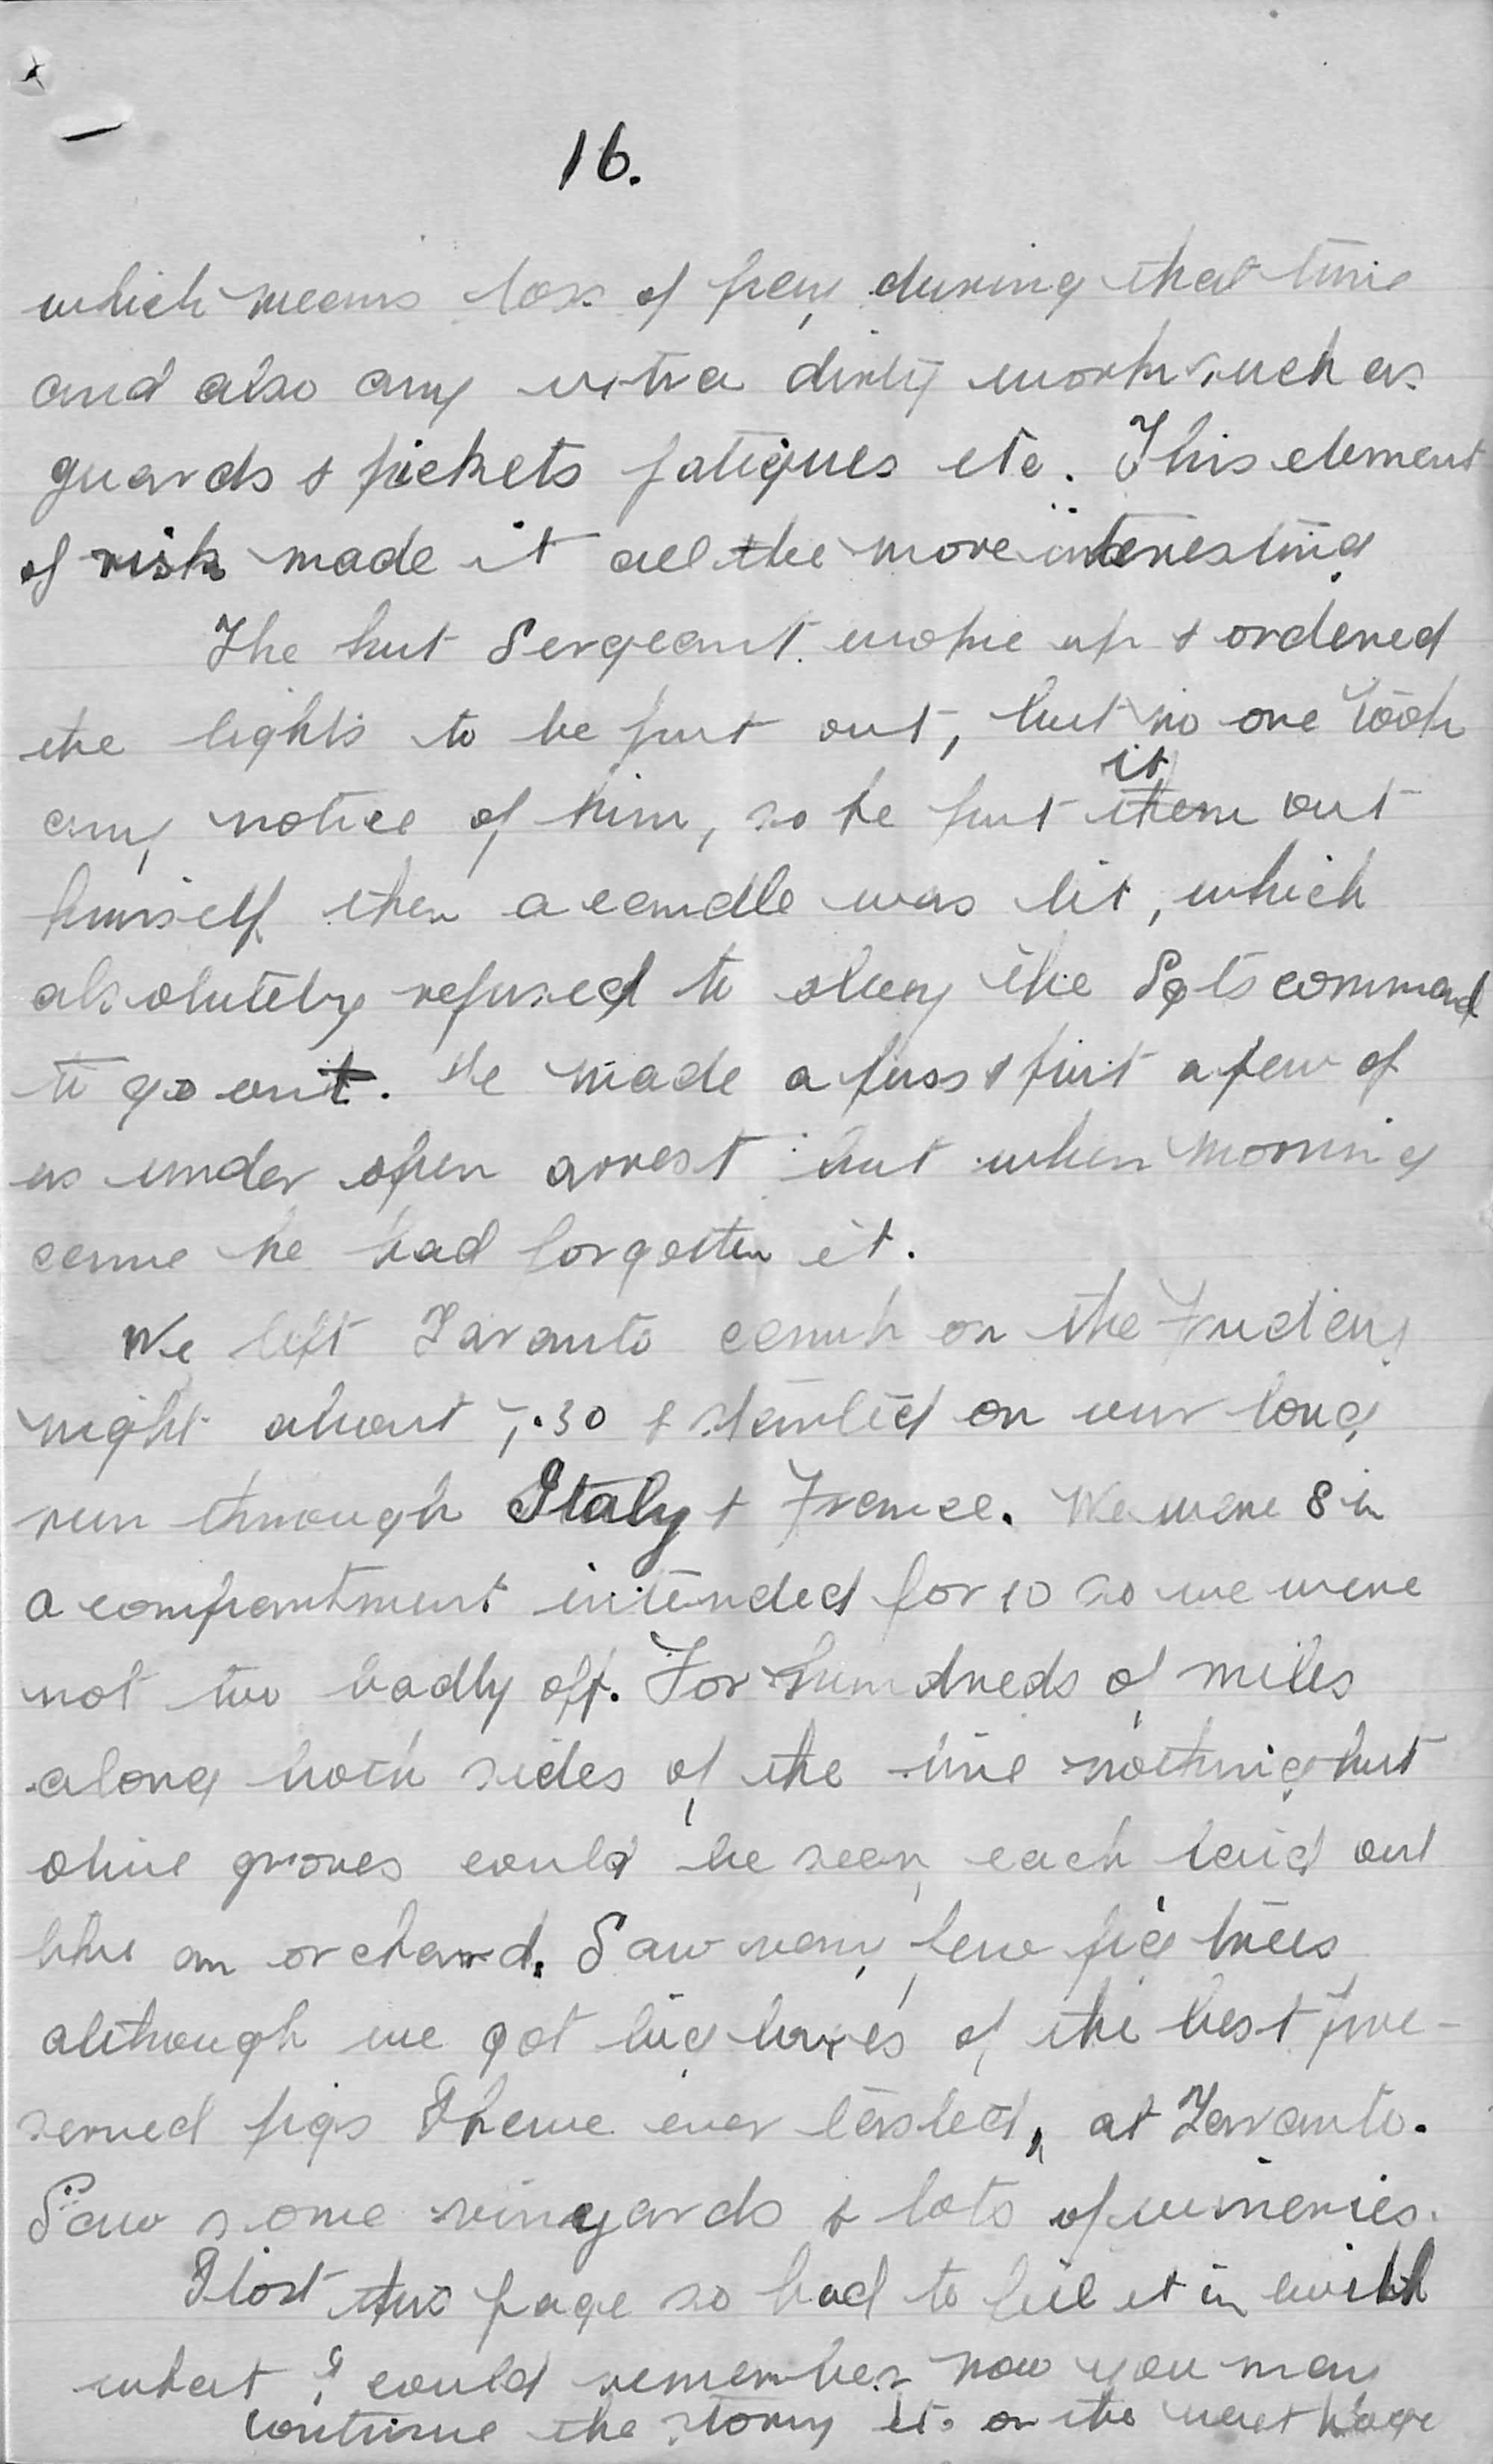 16.
which means loss of pay during that time
and also any extra dirty work such as
guards & pickets fatigues etc. This element
of risk made it all the more interesting
The hut Sergeant woke up & ordered
the lights to be put out, but no one took
it
any notice of him, so he put them out
himself then a candle was lit, which
absolutely refused to obey the Sgts command
to go out. He made a fuss & put a few of
us under open arrest but when morning
came he had forgotten it.
We left Taranto camp on the Friday
night about 7.30 & started on our long
run through Italy & France. We were 8 in
a compartment intended for 10 so we were
not too badly off. For hundreds of miles
along both sides of the line nothing but
olive groves could be seen, each laid out
like an orchard. Saw very few fig trees
although we got big boxes of the best pre-
served figs I have ever tasted, at Taranto.
Saw some vinyards & lots of wineries.
I lost this page so had to fill it in with
what I could remember now you may
continue the story etc on the next page